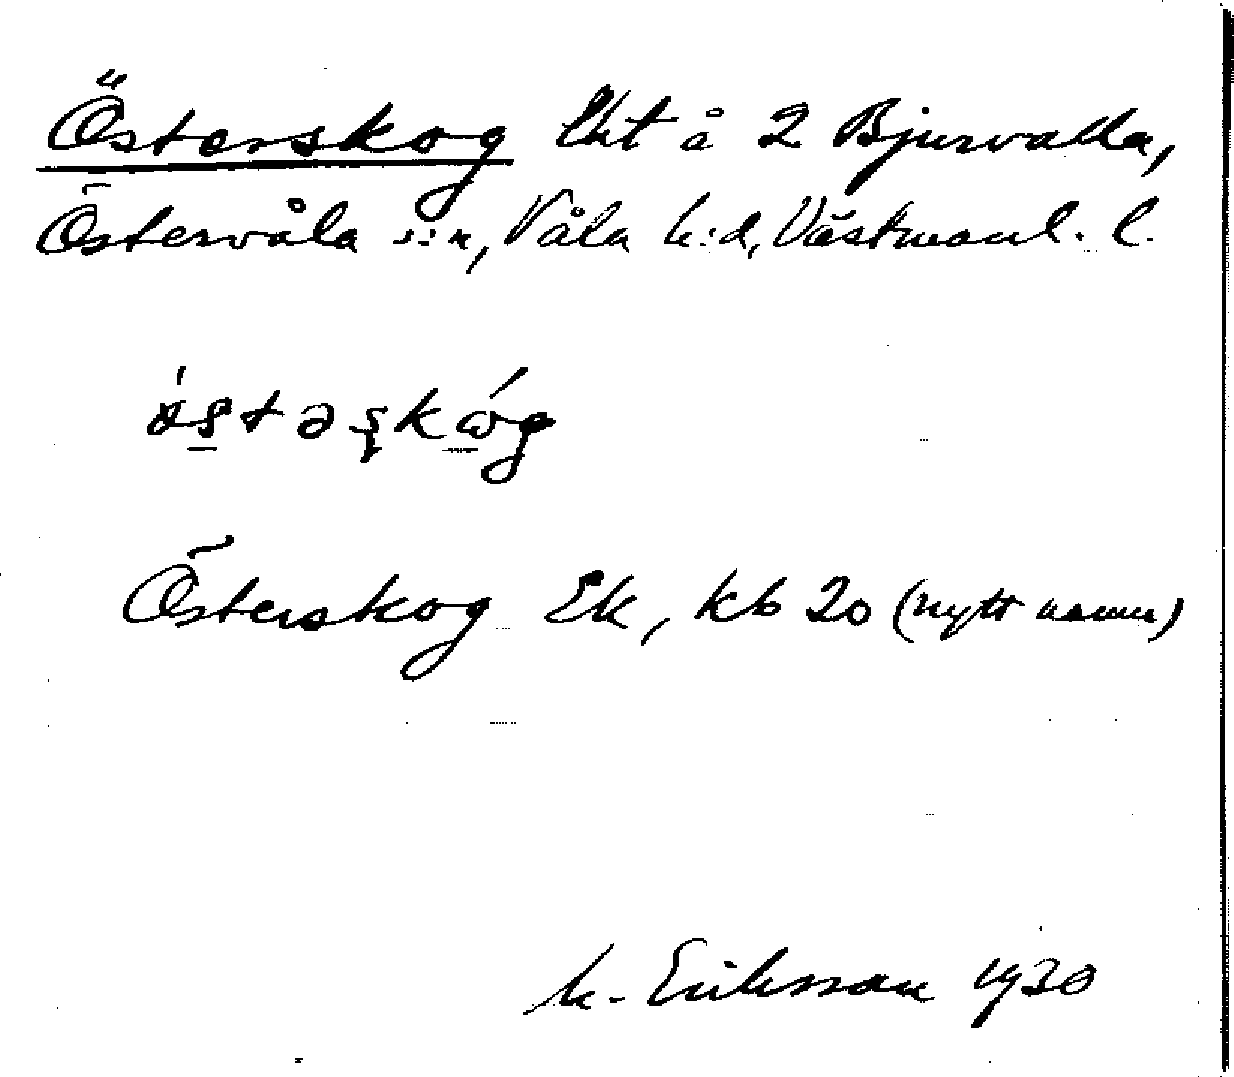 Österskog lht å 2 Bjurvalla,
Östervåla s:n, Våla h:d, Västmanl. l.
östəskóg
Österskog Ek, kb 20 (nytt namn)
M. Eriksson 1930